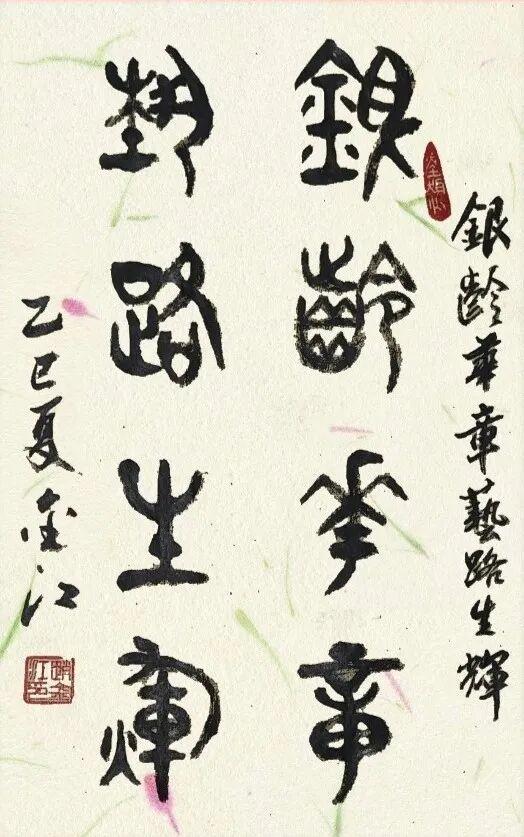 銀齡華章
藝路生輝
銀齡華章藝路生輝
乙巳夏金江